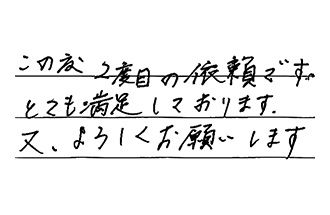 この度 2度目の依頼です。
とても満足しております.
又、よろしくお願いします